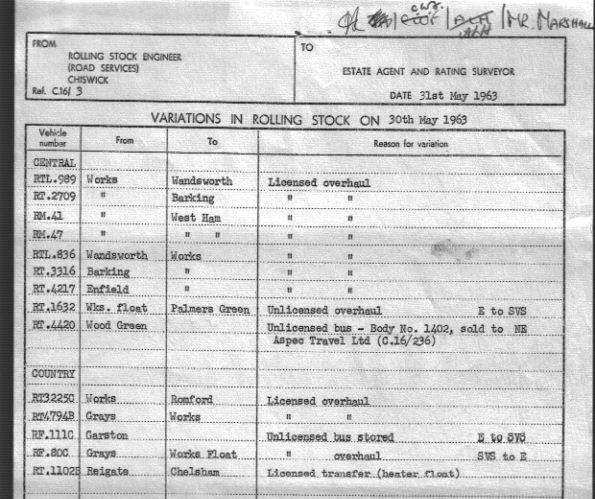 MR. MARSHALL
FROM
ROLLING STOCK ENGINEER
(ROAD SERVICES)
CHISWICK
Ref. C.16/ 3
TO
ESTATE AGENT AND RATING SURVEYOR
DATE 31st May 1963
VARIATIONS IN ROLLING STOCK ON 30th May 1963
Vehicle number From To Reason for variation
CENTRAL
RTL.989 Works Wandsworth Licensed overhaul
RT.2709 " Barking " "
RM.41 " West Ham " "
RM.47 " " " " "
RTL.836 Wandsworth Works " "
RT.3316 Barking " " "
RT.4217 Enfield " " "
RT.1632 Wks. float Palmers Green Unlicensed overhaul E to SVS
RT.4420 Wood Green Unlicensed bus - Body No. 1402, sold to NE
Aspec Travel Ltd (C.16/236)
COUNTRY
RT3225C Works Romford Licensed overhaul
RT4794B Grays Works " "
RF.111C Garston Unlicensed bus stored E to SVS
RF.80C Grays Works Float " overhaul SVS to E
RT.1102B Reigate Chelsham Licensed transfer (heater float)